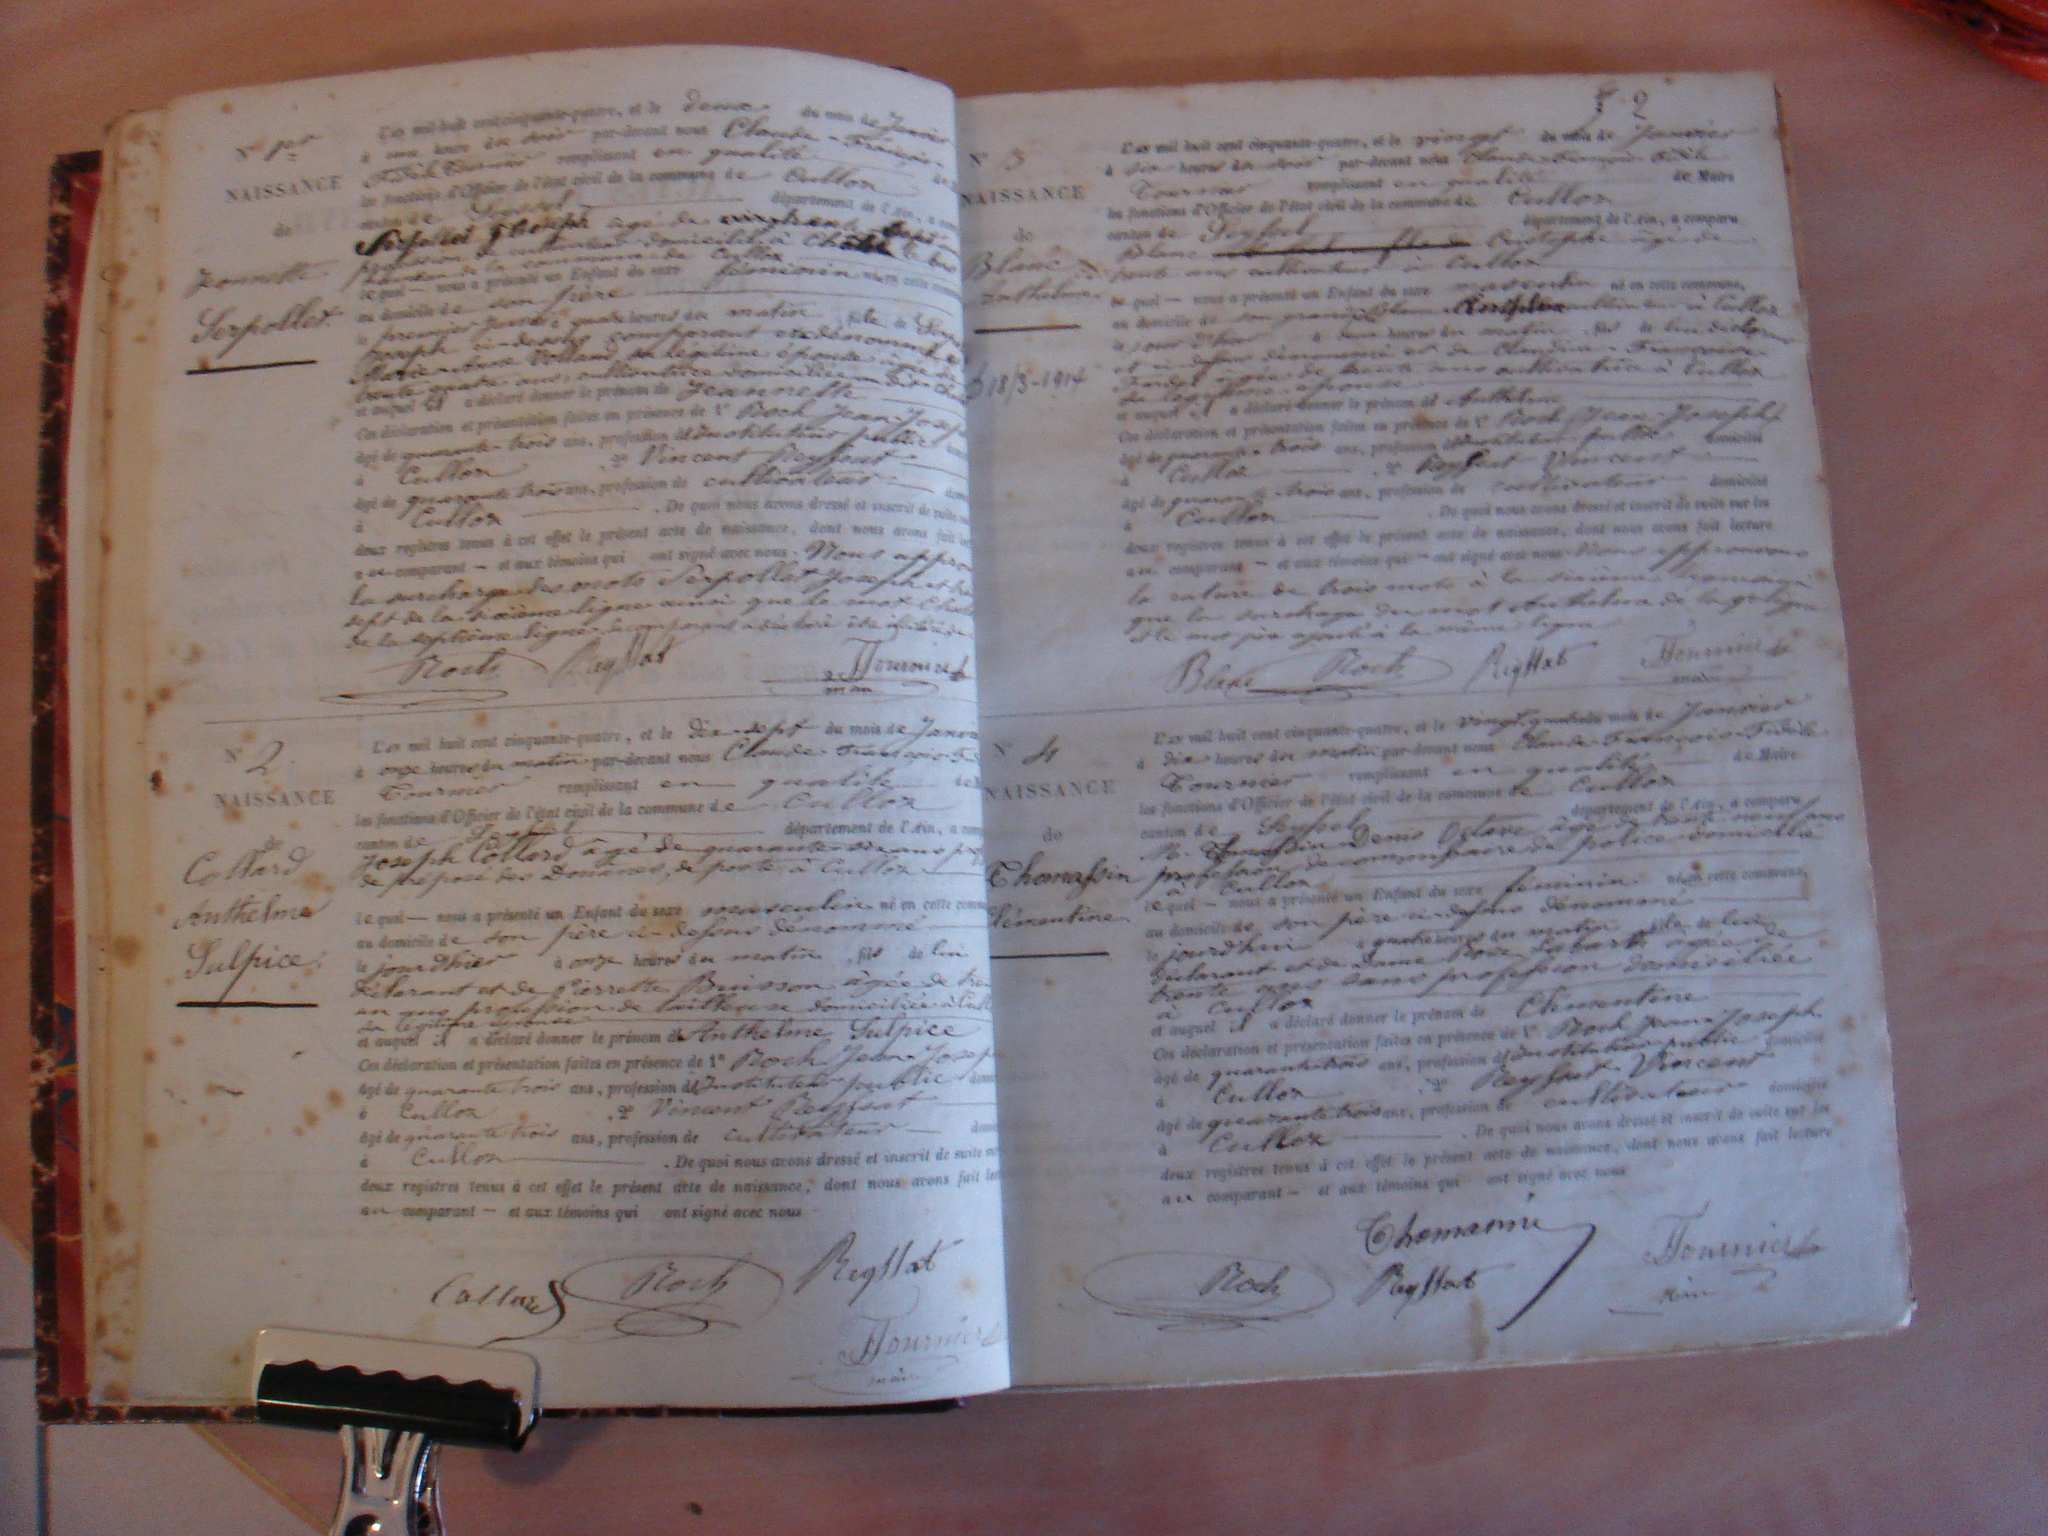 N° 1er
NAISSANCE
de
Jeannette
Serpollet
L'an mil huit cent cinquante-quatre, et le deux du mois de Janvier
à une heure du soir par-devant nous Claude-François-
Fidèle Tournier remplissant en qualité de
les fonctions d'Officier de l'état civil de la commune de Culloz
canton de Seyssel département de l'Ain, a
Serpollet Joseph âgé de
profession de cultivateur domicilié à
de la commune de Culloz
lequel — nous a présenté un Enfant du sexe féminin né en cette
au domicile de son père
le premier à quatre heures du matin, fille de
Joseph ci-dessus comparant et dénommé
Marie-Anne sa légitime épouse âgée de
trente quatre ans, cultivatrice domiciliée
et auquel il a déclaré donner le prénom de Jeannette
Ces déclaration et présentation faites en présence de 1° Roch Jean-Joseph
âgé de quarante-trois ans, profession d'instituteur public
à Culloz , 2° Vincent Reyssat
âgé de quarante trois ans, profession de cultivateur
à Culloz . De quoi nous avons dressé et inscrit de suite
deux registres tenus à cet effet le présent acte de naissance, dont nous avons fait
au comparant — et aux témoins qui ont signé avec nous. Nous
la surcharge des mots Serpollet Joseph et
sept de la sixième ligne ainsi que le mot
de la septième ligne, le comparant a déclaré
Roch Reyssat Tournier
N° 2
NAISSANCE
de
Collard
Anthelme
Sulpice
L'an mil huit cent cinquante-quatre, et le dix-sept du mois de
à onze heures du matin par-devant nous Claude-François
Tournier remplissant en qualité
les fonctions d'Officier de l'état civil de la commune de Culloz
canton de Seyssel département de l'Ain, a
Joseph Collard âgé de quarante ans
de préposé des Douanes, de poste à Culloz
lequel — nous a présenté un Enfant du sexe masculin né en cette
au domicile de son père ci-dessus dénommé
le jourd'hier à onze heures du matin, fils de lui
déclarant et de Pierrette Buisson âgée de
un ans profession de tailleuse domiciliée à
sa légitime épouse
et auquel il a déclaré donner le prénom d'Anthelme Sulpice
Ces déclaration et présentation faites en présence de 1° Roch Jean-Joseph
âgé de quarante trois ans, profession d'Instituteur public
à Culloz , 2° Vincent Reyssat
âgé de quarante trois ans, profession de cultivateur
à Culloz . De quoi nous avons dressé et inscrit de suite
deux registres tenus à cet effet le présent acte de naissance, dont nous avons fait
au comparant — et aux témoins qui ont signé avec nous
Collard Roch Reyssat
Tournier
maire
2
N° 3
NAISSANCE
de
Blanc
Anthelme
18/3-1914
L'an mil huit cent cinquante-quatre, et le du mois de Janvier
à six heures du soir par-devant nous Claude-François-Fidèle
Tournier remplissant en qualité de Maire
les fonctions d'Officier de l'état civil de la commune de Culloz
canton de Seyssel département de l'Ain, a comparu
Blanc âgé de
trente ans cultivateur à Culloz
lequel — nous a présenté un Enfant du sexe masculin né en cette commune,
au domicile de son à Culloz
le jour d'hier à heures du matin, fils de lui
et ci-dessus dénommé et de Claudine Françoise
âgée de trente ans cultivatrice à Culloz
sa légitime épouse
et auquel il a déclaré donner le prénom d'Anthelme
Ces déclaration et présentation faites en présence de 1° Roch Jean-Joseph
âgé de quarante-trois ans, profession d'instituteur public domicilié
à Culloz , 2° Reyssat Vincent
âgé de quarante-trois ans, profession de cultivateur domicilié
à Culloz . De quoi nous avons dressé et inscrit de suite sur les
deux registres tenus à cet effet le présent acte de naissance, dont nous avons fait lecture
au comparant — et aux témoins qui — ont signé avec nous. Nous approuvons
la rature de trois mots à la sixième
que la surcharge du mot Anthelme de la
à la même ligne
Blanc Roch Reyssat Tournier
maire
N° 4
NAISSANCE
de
Thomassin
Clémentine
L'an mil huit cent cinquante-quatre, et le vingt-quatre du mois de Janvier
à dix heures du matin par-devant nous Claude-François-Fidèle
Tournier remplissant en qualité de Maire
les fonctions d'Officier de l'état civil de la commune de Culloz
canton de Seyssel département de l'Ain, a comparu
M. Thomassin Denis Octave âgé de trente neuf ans
profession de commissaire de police domicilié
à Culloz
lequel — nous a présenté un Enfant du sexe féminin né en cette commune,
au domicile de son père ci-dessus dénommé
le jourd'hui à quatre heures du matin, fille de lui
déclarant et de Dame Rose âgée de
trente ans sans profession domiciliée
à Culloz
et auquel il a déclaré donner le prénom de Clémentine
Ces déclaration et présentation faites en présence de 1° Roch Jean-Joseph
âgé de quarante trois ans, profession d'instituteur public domicilié
à Culloz , 2° Reyssat Vincent
âgé de quarante trois ans, profession de cultivateur domicilié
à Culloz . De quoi nous avons dressé et inscrit de suite sur les
deux registres tenus à cet effet le présent acte de naissance, dont nous avons fait lecture
au comparant — et aux témoins qui ont signé avec nous
Thomassin
Roch Reyssat Tournier
maire